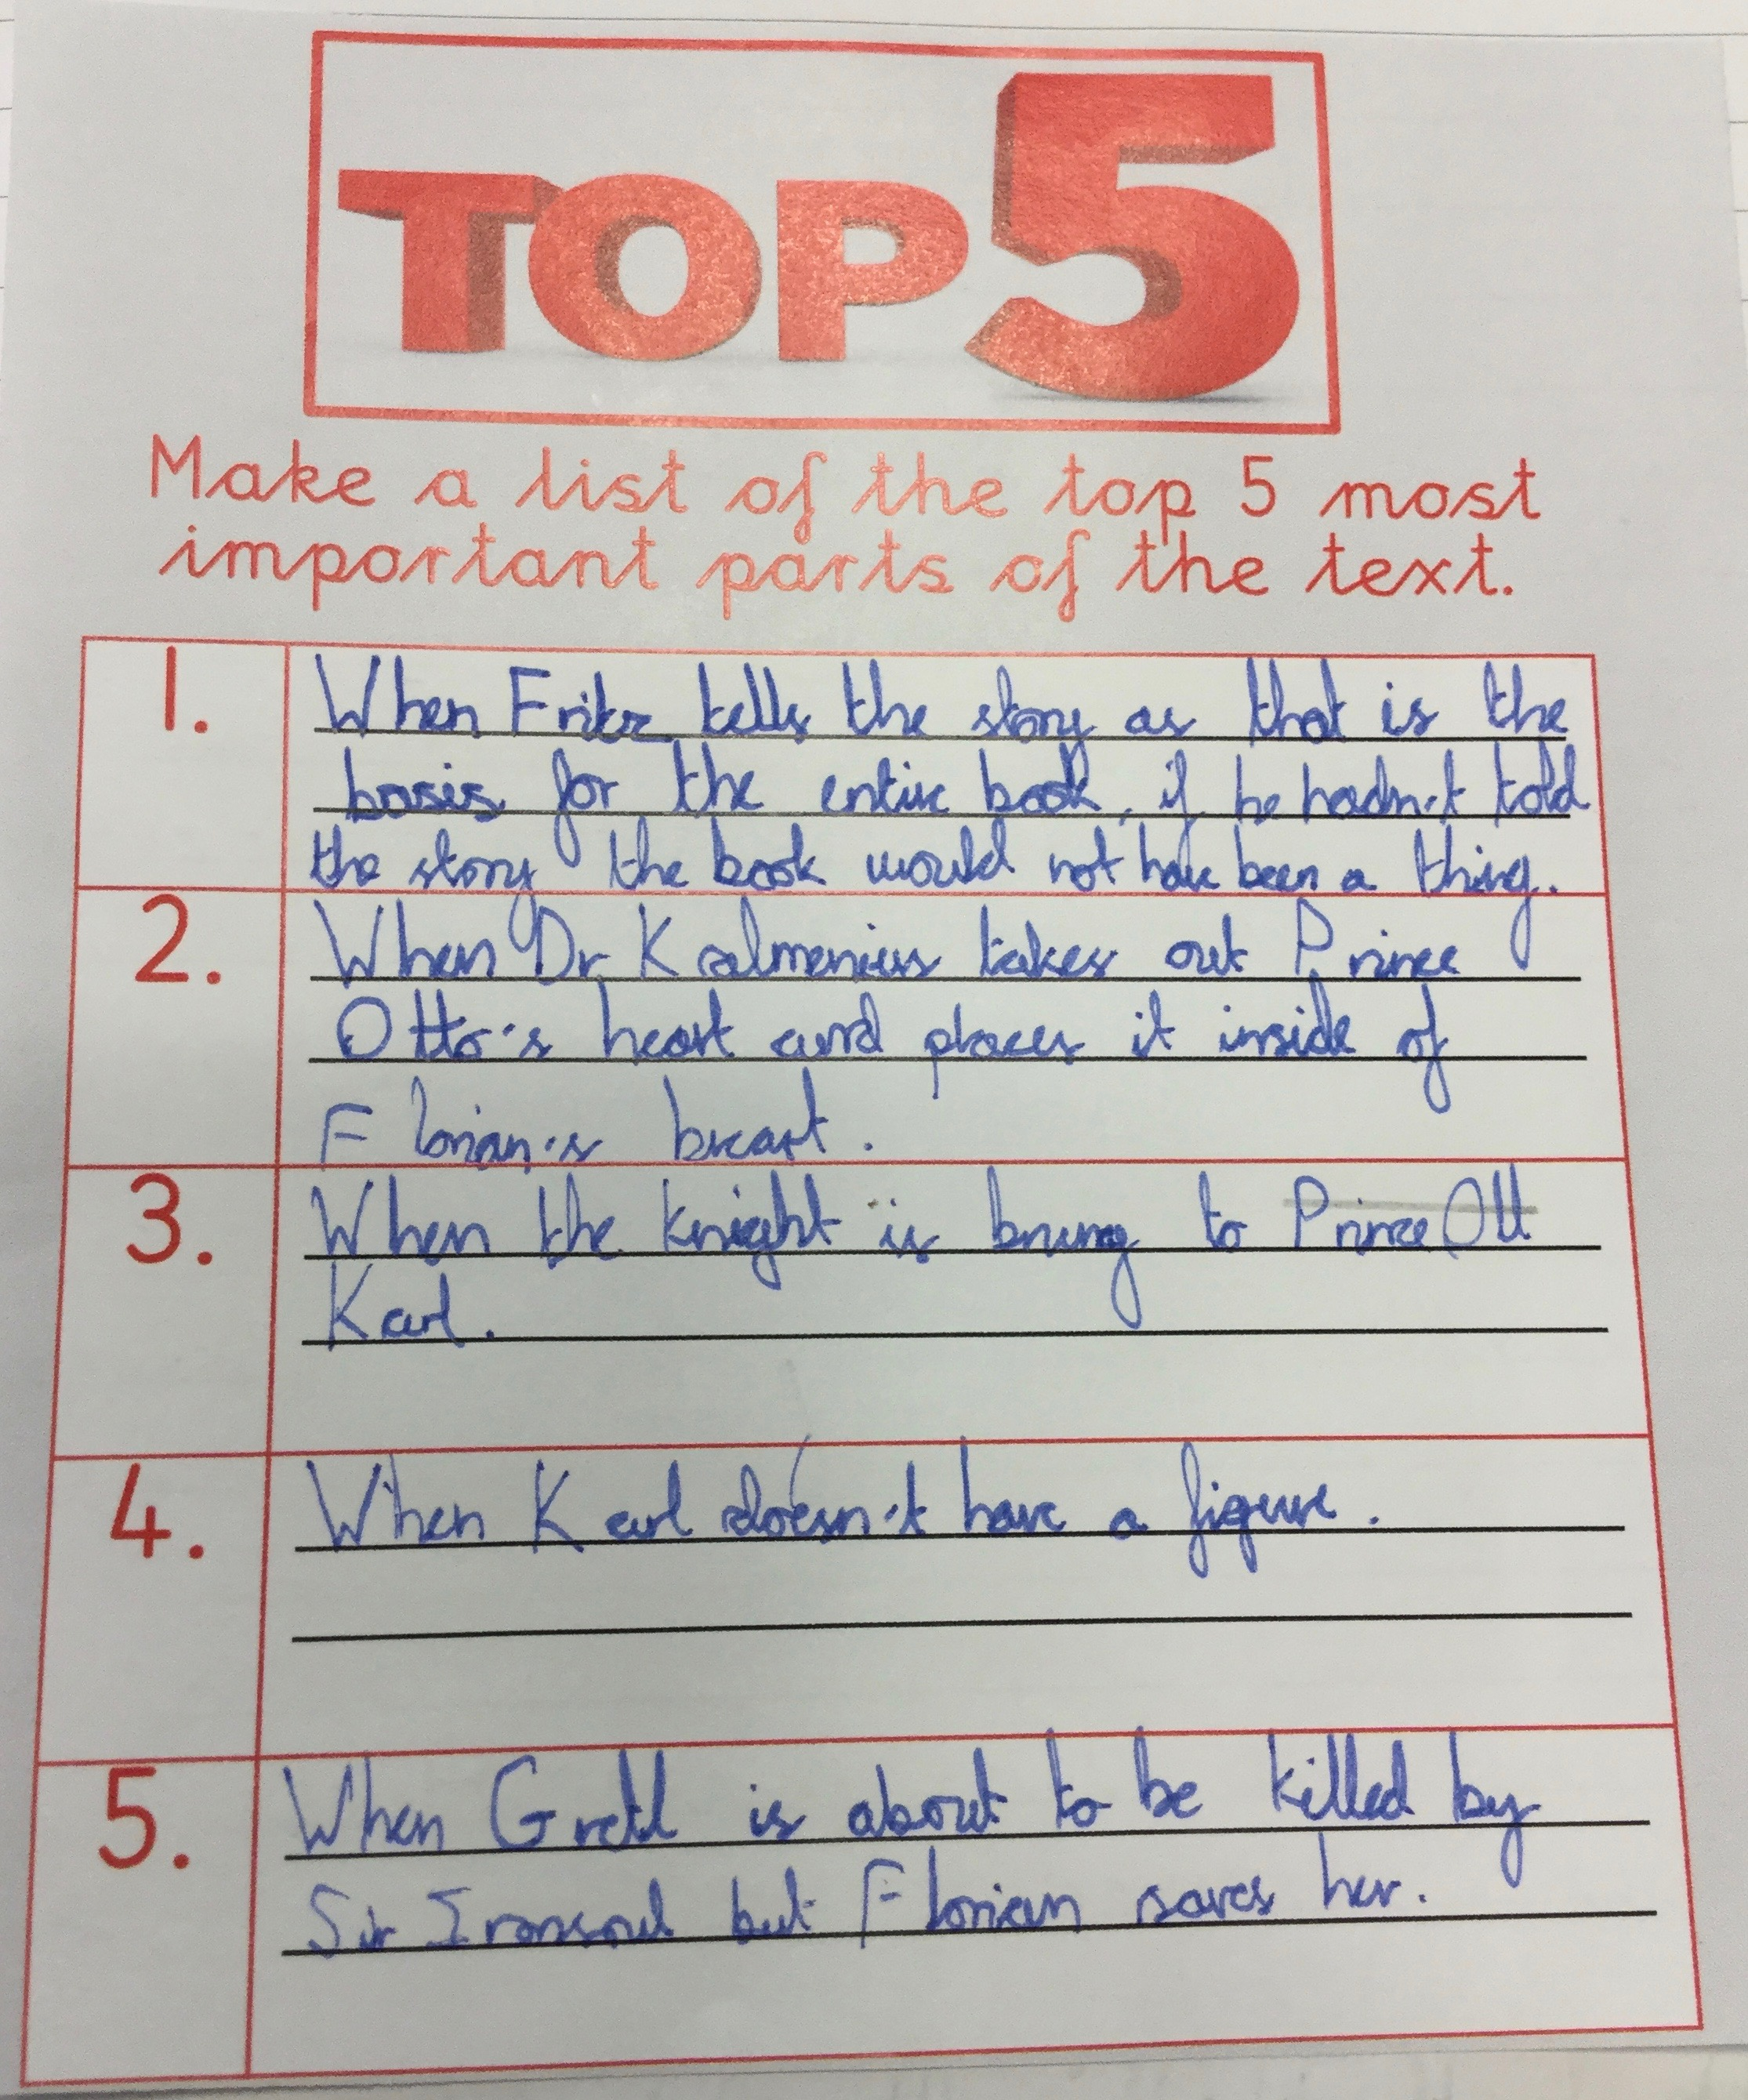 TOP 5
Make a list of the top 5 most
important parts of the text.
1. When Fritz tells the story as that is the
basis for the entire book, if he hadn't told
the story the book would not have been a thing.
2. When Dr Kalmenius takes out Prince
Otto's heart and places it inside of
Florian's breast.
3. When the knight is brung to Prince Ott
Karl.
4. When Karl doesn't have a figure.
5. When Gretl is about to be killed by
Sir Ironsoul but Florian saves her.